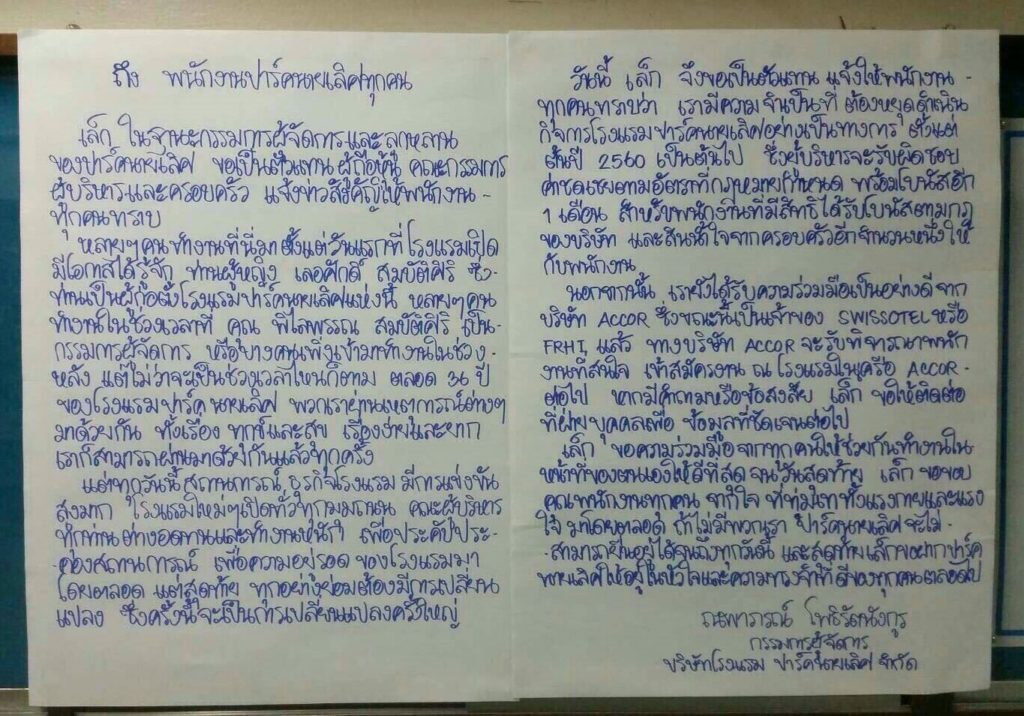 ถึง พนักงานปาร์คนายเลิศทุกคน
เล็ก ในฐานะกรรมการผู้จัดการและลูกหลาน
ของปาร์คนายเลิศ ขอเป็นตัวแทน ผู้ถือหุ้น คณะกรรมการ
ผู้บริหารและครอบครัว แจ้งข่าวสำคัญให้พนักงาน-
ทุกคนทราบ
หลายๆคนทำงานที่นี่มาตั้งแต่วันแรกที่โรงแรมเปิด
มีโอกาสได้รู้จัก ท่านผู้หญิง เลอศักดิ์ สมบัติศิริ ซึ่ง-
ท่านเป็นผู้ก่อตั้งโรงแรมปาร์คนายเลิศแห่งนี้ หลายๆคน
ทำงานในช่วงเวลาที่ คุณ พิไลพรรณ สมบัติศิริ เป็น-
กรรมการผู้จัดการ หรือบางคนเพิ่งเข้ามาทำงานในช่วง-
หลัง แต่ไม่ว่าจะเป็นช่วงเวลาไหนก็ตาม ตลอด 36 ปี
ของโรงแรมปาร์คนายเลิศ พวกเราผ่านเหตุการณ์ต่างๆ
มาด้วยกัน ทั้งเรื่อง ทุกข์และสุข เรื่องง่ายและยาก
เราก็สามารถผ่านมาด้วยกันแล้วทุกครั้ง
แต่ทุกวันนี้ สถานการณ์ ธุรกิจโรงแรม มีการแข่งขัน
สูงมาก โรงแรมใหม่ๆเปิดทั่วทุกมุมถนน คณะผู้บริหาร
ทุกท่านต่างอดทนและทำงานหนัก เพื่อประคับประ-
คองสถานการณ์ เพื่อความอยู่รอด ของโรงแรมมา
โดยตลอด แต่สุดท้าย ทุกอย่างย่อมต้องมีการเปลี่ยน
แปลง ซึ่งครั้งนี้จะเป็นการเปลี่ยนแปลงครั้งใหญ่
วันนี้ เล็ก จึงขอเป็นตัวแทน แจ้งให้พนักงาน-
ทุกคนทราบว่า เรามีความจำเป็นที่ ต้องหยุดดำเนิน
กิจการโรงแรมปาร์คนายเลิศอย่างเป็นทางการ ตั้งแต่
ต้นปี 2560 เป็นต้นไป ซึ่งผู้บริหารจะรับผิดชอบ
ค่าชดเชยตามอัตราที่กฎหมายกำหนด พร้อมโบนัสอีก
1 เดือน สำหรับพนักงานที่มีสิทธิได้รับโบนัสตามกฎ
ของบริษัท และสินน้ำใจจากครอบครัวอีกจำนวนหนึ่งให้
กับพนักงาน
นอกจากนั้น เรายังได้รับความร่วมมือเป็นอย่างดี จาก
บริษัท ACCOR ซึ่งขณะนี้เป็นเจ้าของ SWISSOTEL หรือ
FRHI แล้ว ทางบริษัท ACCOR จะรับพิจารณาพนัก
งานที่สนใจ เข้าสมัครงาน ณ โรงแรมในเครือ ACCOR-
ต่อไป หากมีคำถามหรือข้อสงสัย เล็ก ขอให้ติดต่อ
ที่ฝ่ายบุคคลเพื่อ ข้อมูลที่ชัดเจนต่อไป
เล็ก ขอความร่วมมือ จากทุกคนให้ช่วยกันทำงานใน
หน้าที่ของตนเองให้ดีที่สุด จนวันสุดท้าย เล็ก ขอขอบ
คุณพนักงานทุกคน จากใจ ที่ทุ่มเททั้งแรงกายและแรง
ใจ มาโดยตลอด ถ้าไม่มีพวกเรา ปาร์คนายเลิศจะไม่-
-สามารถยืนอยู่ได้จนถึงทุกวันนี้ และสุดท้ายเล็กขอฝากปาร์ค
นายเลิศให้อยู่ในหัวใจและความทรงจำที่ดีของทุกคนตลอดไป
ณพาภรณ์ โพธิรัตนังกูร
กรรมการผู้จัดการ
บริษัทโรงแรม ปาร์คนายเลิศ จำกัด